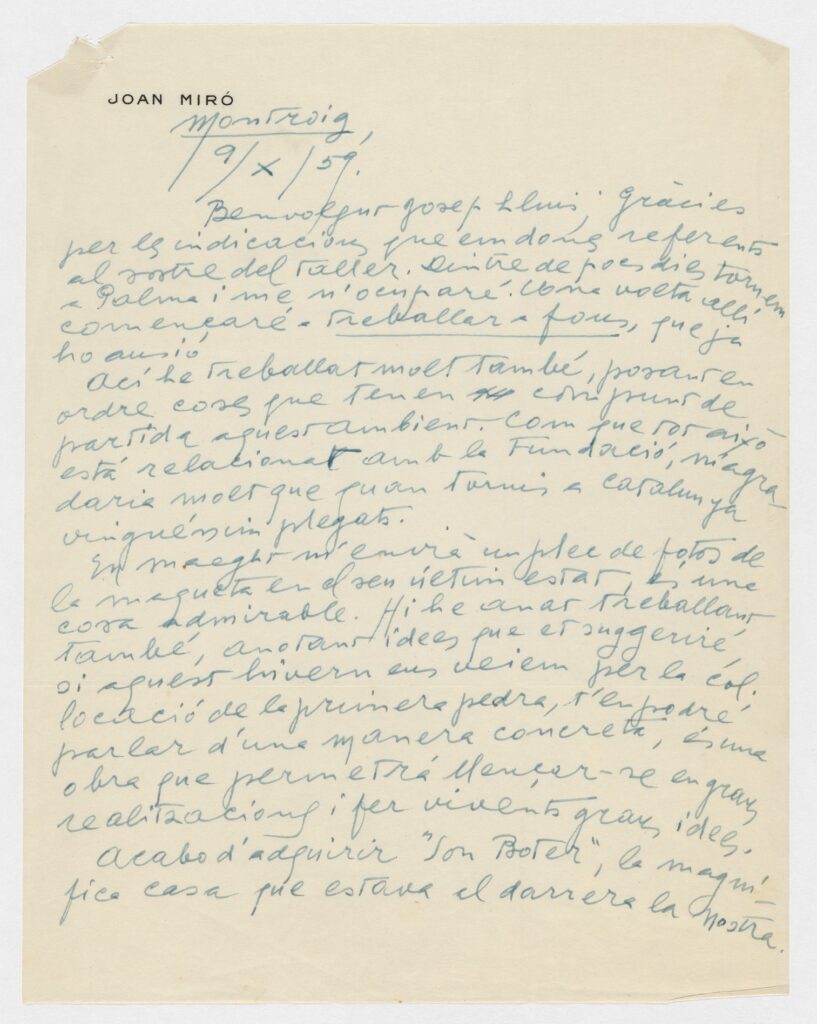 JOAN MIRÓ
Montroig,
9/X/59.
Benvolgut Josep Lluis; Gràcies
per les indicacions que em dones referents
al sostre del taller. Dintre de pocs dies tornem
a Palma i me n'ocuparé. Una volta allí
començaré a treballar a fons, que ja
ho ansio
Ací he treballat molt també, posant en
ordre coses que tenen com punt de
partida aquest ambient. Com que tot això
está relacionat amb la Fundació, m'agra-
daria molt que quan tornis a Catalunya
vinguéssim plegats.
En Maeght m'envià un plec de fotos de
la maqueta en el seu últim estat, és una
cosa admirable. Hi he anat treballant
també, anotant idees que et suggeriré,
si aquest hivern ens veiem per la col.
locació de la primera pedra, t'en podré
parlar d'una manera concreta, és una
obra que permetrá llençar-se en grans
realitzacions i fer vivents grans idees.
Acabo d'adquirir "Son Boter", la magní-
fica casa que estava al darrera la nostra.